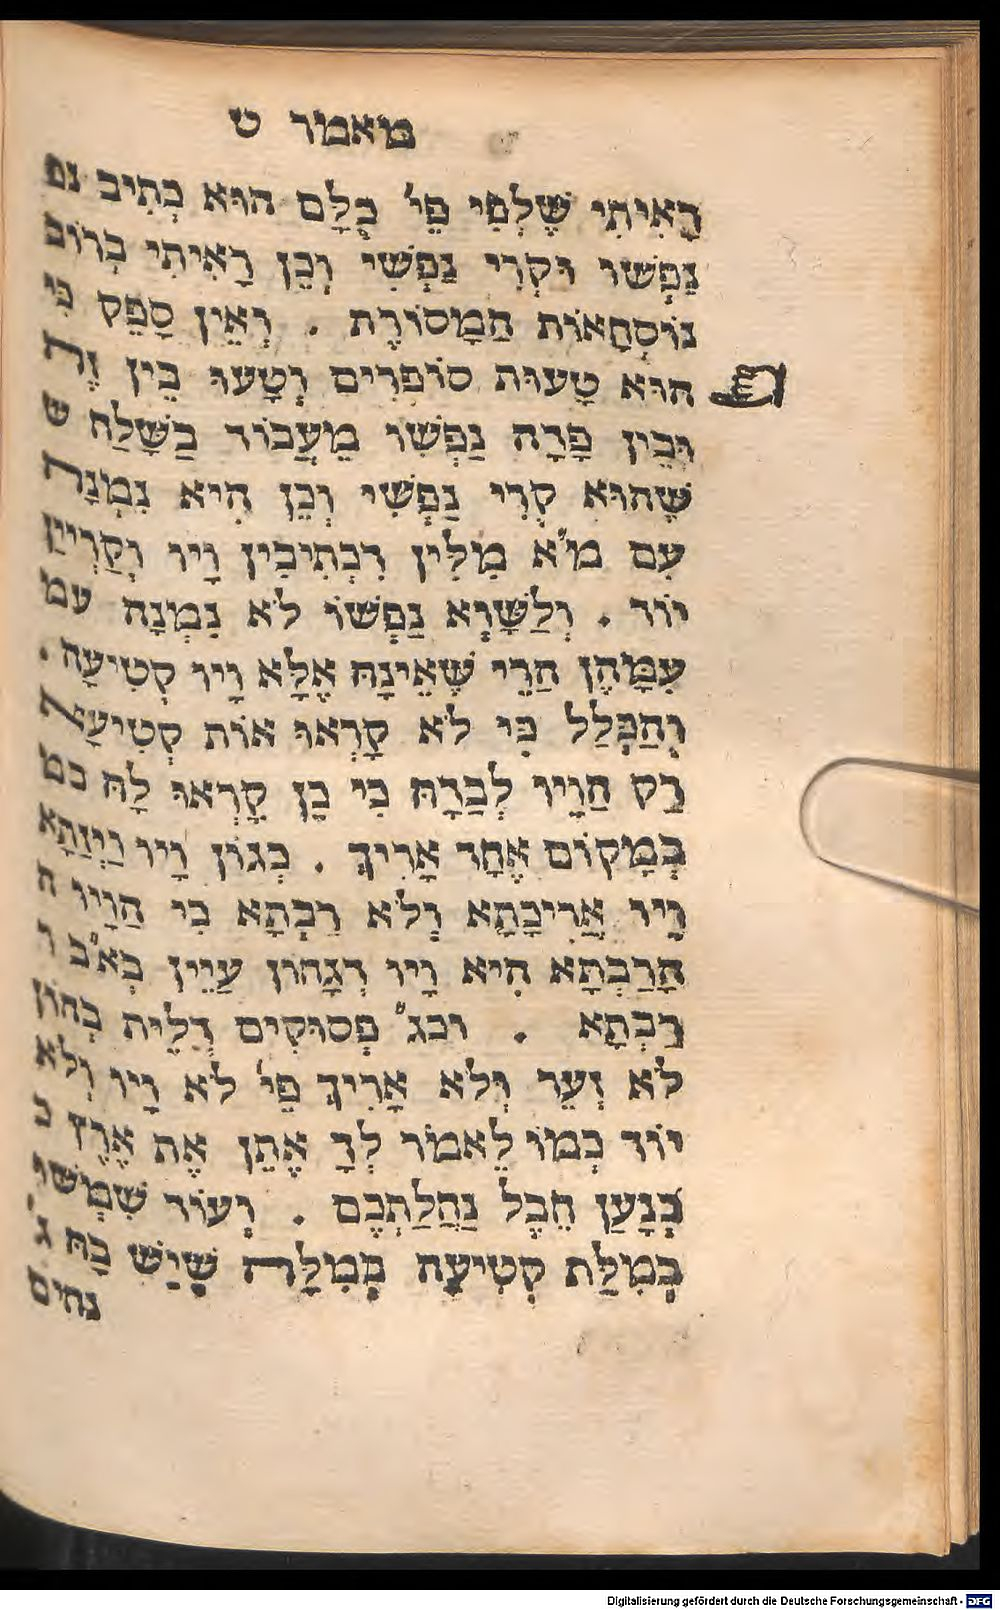 מאמר ט
רָאִיתִי שֶׁלְפִי פֵי׳ כֻלָּם הוּא כְתִיב גם
נַפְשׁוֹ וּקְרִי נַפְשִׁי וְכֵן רָאִיתִי בְרוֹב
נוֹסְחָאוֹת הַמָסוֹרֶת . וְאֵין סָפֵק כִּי
הוּא טָעוּת סוֹפְרִים וְטָעוּ בֵין זֶה
וּבֵין פָּדָה נַפְשׁוֹ מֵעֲבוֹר בַּשָּׁלַח ש
שֶׁהוּא קְרִי נַפְשִׁי וְכֵן הִיא נִמְנָה
עִם מ״א מִלִין דִכְתִיבִין וָיו וְקַרְיָין
יוֹד . וְלַשָּׁוְא נַפְשׁוֹ לֹא נִמְנָה עם
עִמָּהֶן הַרֵי שֶׁאֵינָהּ אֶלָּא וָיו קְטִיעָה .
וְהַכְּלַל כִּי לֹא קָרְאוּ אוֹת קְטִיעָא
רַק הַוָיו לְבַדָהּ כִּי כָן קָרְאוּ לָהּ בם
בְמָקוֹם אֶחָד אָרִיךְ . כְגוֹן וָיו וַיְזָתָא
וָיו אֲרִיכָתָא וְלֹא רַבְּתָא כִּי הַוָיו ה
הָרַבְתָא הִיא וָיו דְגָחוֹן עַיֵין בְא״ב ר
רַבְתָא . ובג״ פְסוּקִים דְלֵית בְהוֹן
לֹא זְעֵר וְלֹא אָרִיךְ פֵי׳ לֹא וָיו וְלֹא
יוֹד כְמוֹ לֵאמֹר לְךָ אֶתֵן אֶת אֶרֶץ כ
כְּנָעַן חֵבֶל נַחֲלַתְכֶם . וְעוֹד שִׁמְּשׁוּ
בְמִלַּת קְטִיעָה בְמִלָּה שֶׁיֵּשׁ בָהּ ג׳
נחים
Digitalisierung gefördert durch die Deutsche Forschungsgemeinschaft - DFG